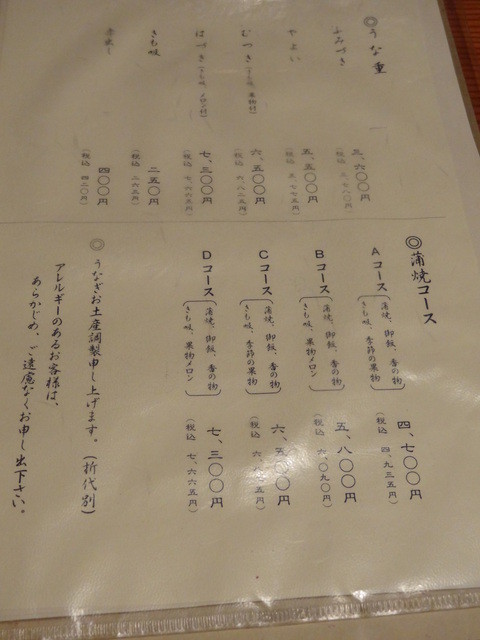 ◎うな重
ふみづき 三、六〇〇円
(税込 三、七八〇円)
やよい 五、五〇〇円
(税込 五、七七五円)
むつき(きも吸、果物付) 六、五〇〇円
(税込 六、八二五円)
はづき(きも吸、メロン付) 七、三〇〇円
(税込 七、六六五円)
きも吸 二五〇円
(税込 二六五円)
赤出し 四〇〇円
(税込 四二〇円)
◎蒲焼コース
Aコース 蒲焼、御飯、香の物
きも吸、季節の果物
四、七〇〇円
(税込 四、九三五円)
Bコース 蒲焼、御飯、香の物
きも吸、果物メロン
五、八〇〇円
(税込 六、〇九〇円)
Cコース 蒲焼、御飯、香の物
きも吸、季節の果物
六、五〇〇円
(税込 六、八二五円)
Dコース 蒲焼、御飯、香の物
きも吸、果物メロン
七、三〇〇円
(税込 七、六六五円)
◎うなぎお土産調製申し上げます。(折代別)
アレルギーのあるお客様は、
あらかじめ、ご遠慮なくお申し出下さい。